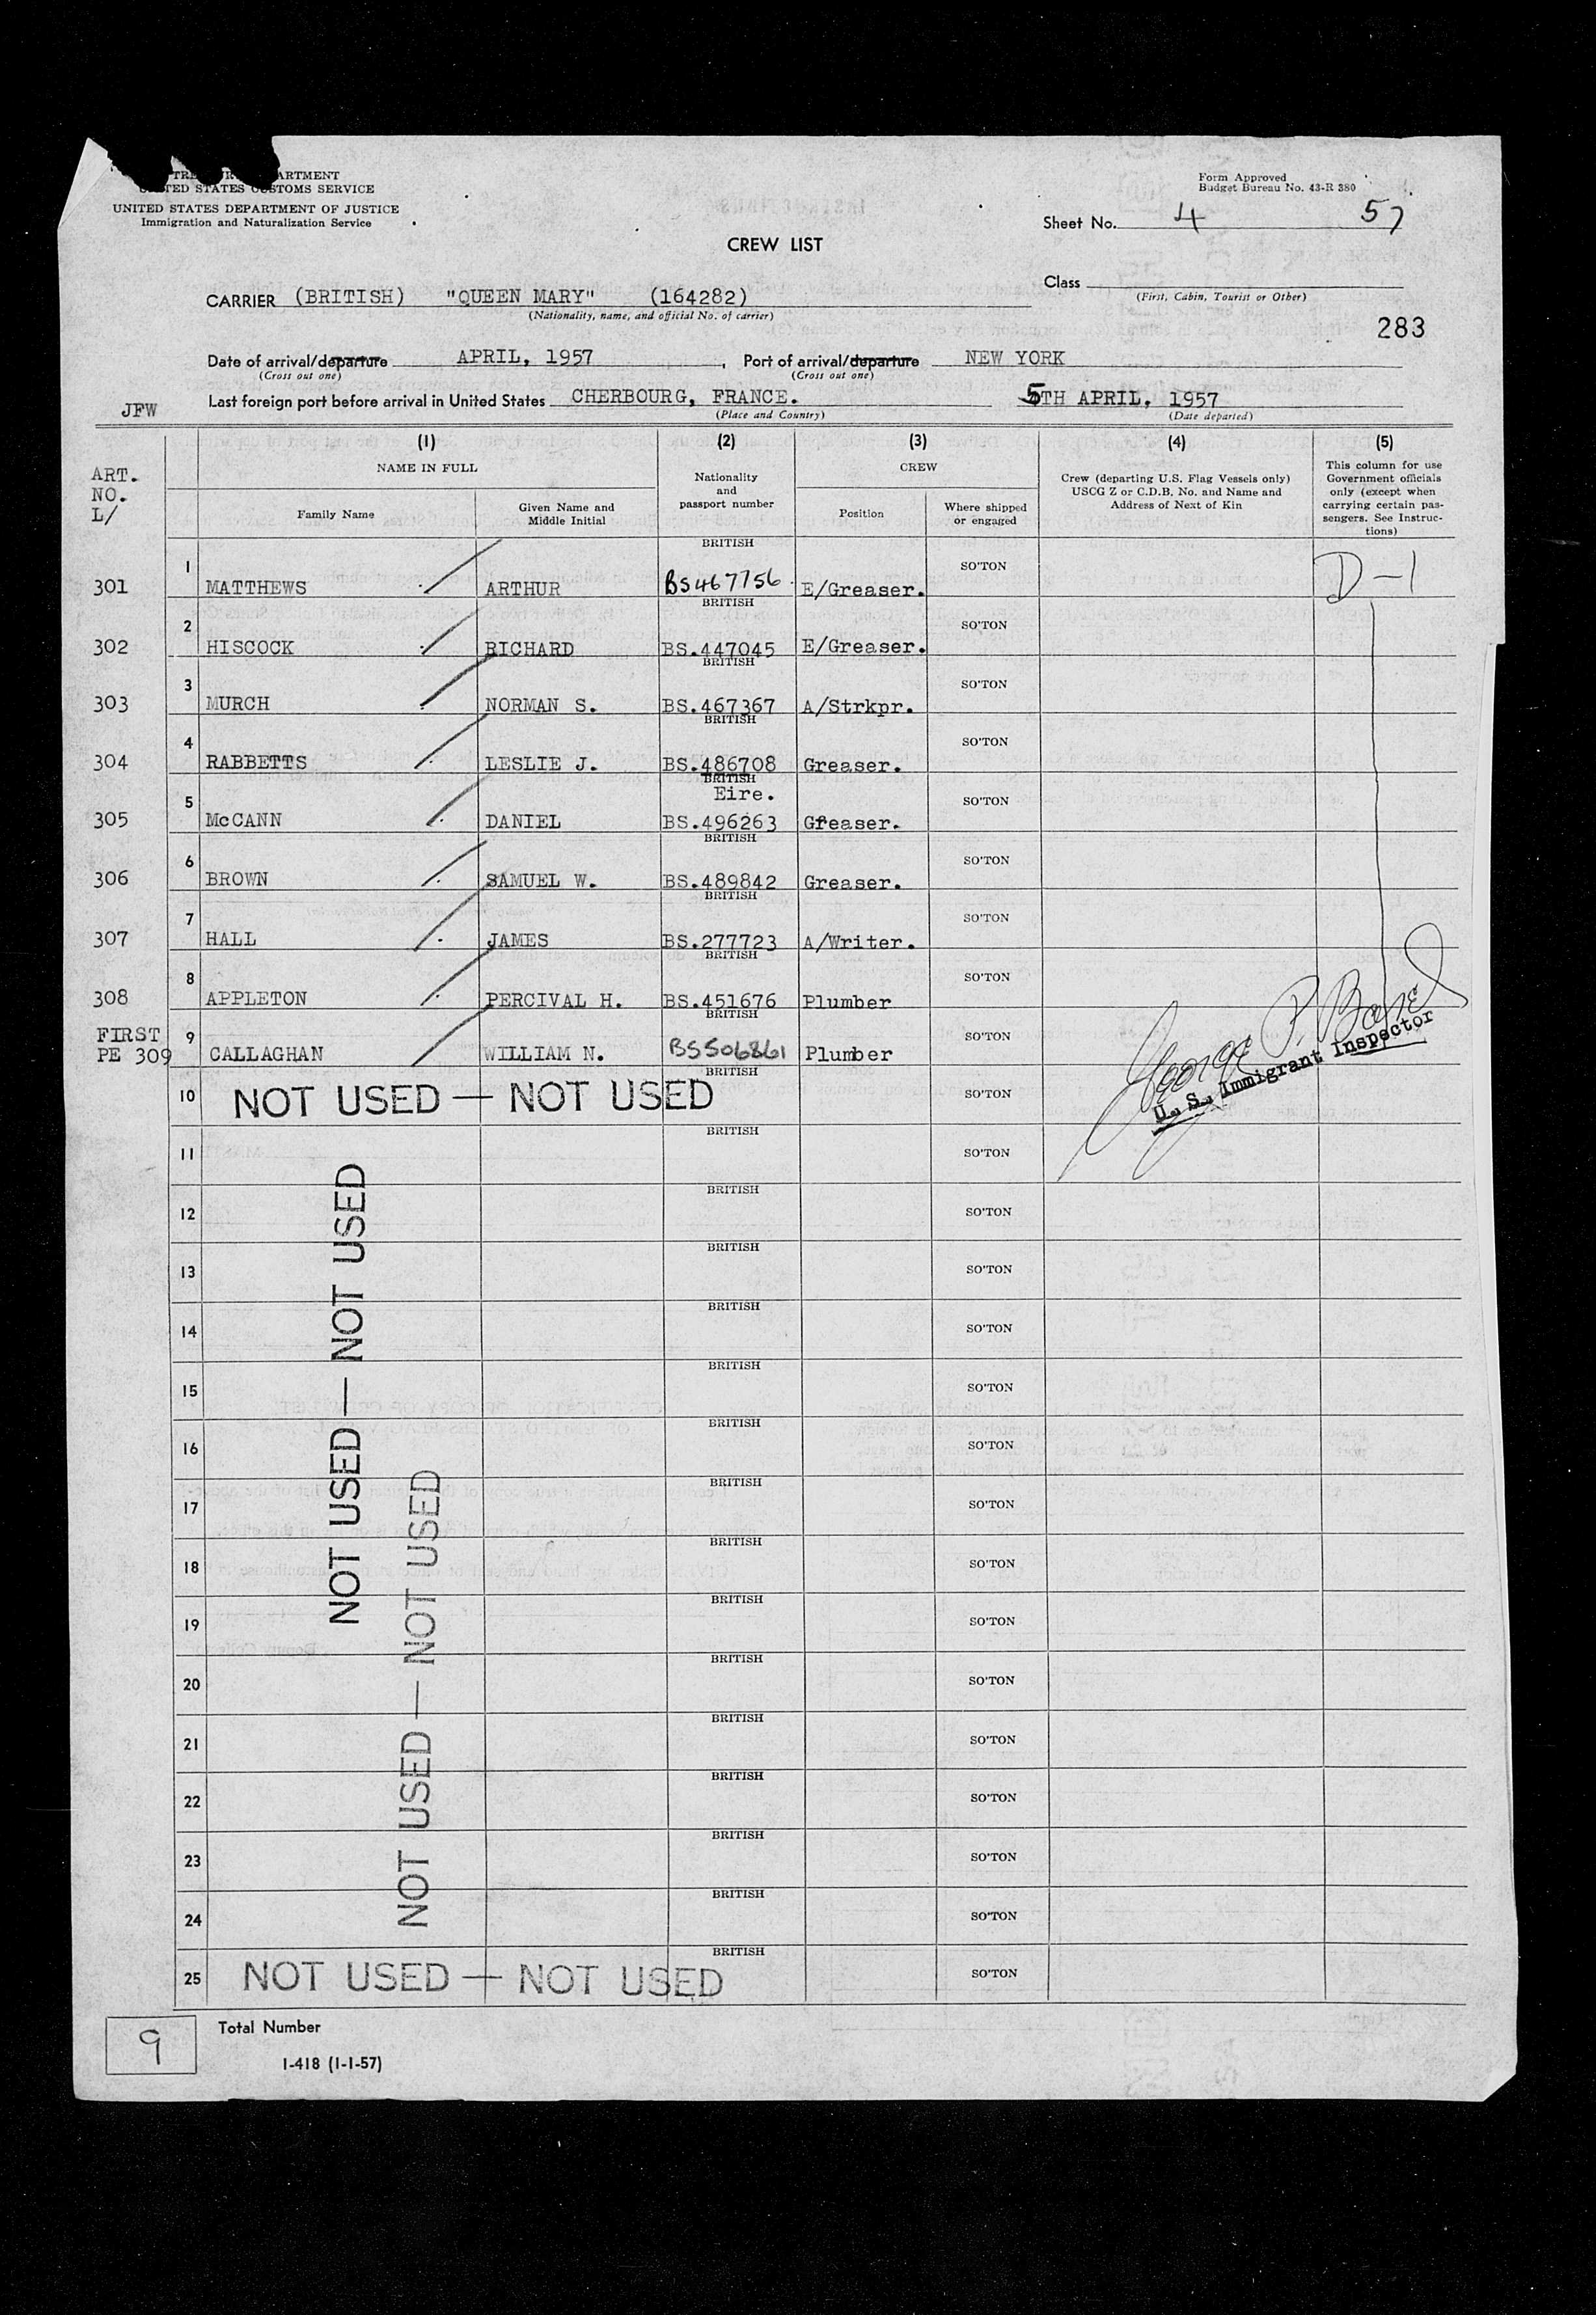 ARTMENT
UNITED STATES CUSTOMS SERVICE
UNITED STATES DEPARTMENT OF JUSTICE
Immigration and Naturalization Service
Form Approved
Budget Bureau No. 43-R 380
Sheet No. 4 57
CREW LIST
Class
(First, Cabin, Tourist or Other)
CARRIER (BRITISH) "QUEEN MARY" (164282)
(Nationality, name, and official No. of carrier)
283
Date of arrival/departure APRIL, 1957, Port of arrival/departure NEW YORK
(Cross out one) (Cross out one)
JFW Last foreign port before arrival in United States CHERBOURG, FRANCE. 5TH APRIL, 1957
(Place and Country) (Date departed)
ART.
NO.
L/
(1) (2) (3) (4) (5)
NAME IN FULL
Family Name
Given Name and
Middle Initial
Nationality
and
passport number
CREW
Position
Where shipped
or engaged
Crew (departing U.S. Flag Vessels only)
USCG Z or C.D.B. No. and Name and
Address of Next of Kin
This column for use
Government officials
only (except when
carrying certain pas-
sengers. See Instruc-
tions)
BRITISH
301 1 MATTHEWS ARTHUR BS467756 E/Greaser. SO'TON D-1
BRITISH
302 2 HISCOCK RICHARD BS.447045 E/Greaser. SO'TON
BRITISH
303 3 MURCH NORMAN S. BS.467367 A/Strkpr. SO'TON
BRITISH
304 4 RABBETTS LESLIE J. BS.486708 Greaser. SO'TON
BRITISH
Eire.
305 5 McCANN DANIEL BS.496263 Greaser. SO'TON
BRITISH
306 6 BROWN SAMUEL W. BS.489842 Greaser. SO'TON
BRITISH
307 7 HALL JAMES BS.277723 A/Writer. SO'TON
BRITISH
308 8 APPLETON PERCIVAL H. BS.451676 Plumber SO'TON
BRITISH
FIRST
PE 309 9 CALLAGHAN WILLIAM N. BS506861 Plumber SO'TON
George P.
U. S. Immigrant Inspector
BRITISH
10 NOT USED — NOT USED SO'TON
BRITISH
11 SO'TON
BRITISH
12 SO'TON
BRITISH
13 SO'TON
BRITISH
14 SO'TON
BRITISH
15 SO'TON
BRITISH
16 SO'TON
BRITISH
17 SO'TON
BRITISH
18 SO'TON
BRITISH
19 SO'TON
BRITISH
20 SO'TON
BRITISH
21 SO'TON
BRITISH
22 SO'TON
BRITISH
23 SO'TON
BRITISH
24 SO'TON
NOT USED — NOT USED
NOT USED — NOT USED
BRITISH
25 NOT USED — NOT USED SO'TON
9 Total Number
I-418 (1-1-57)